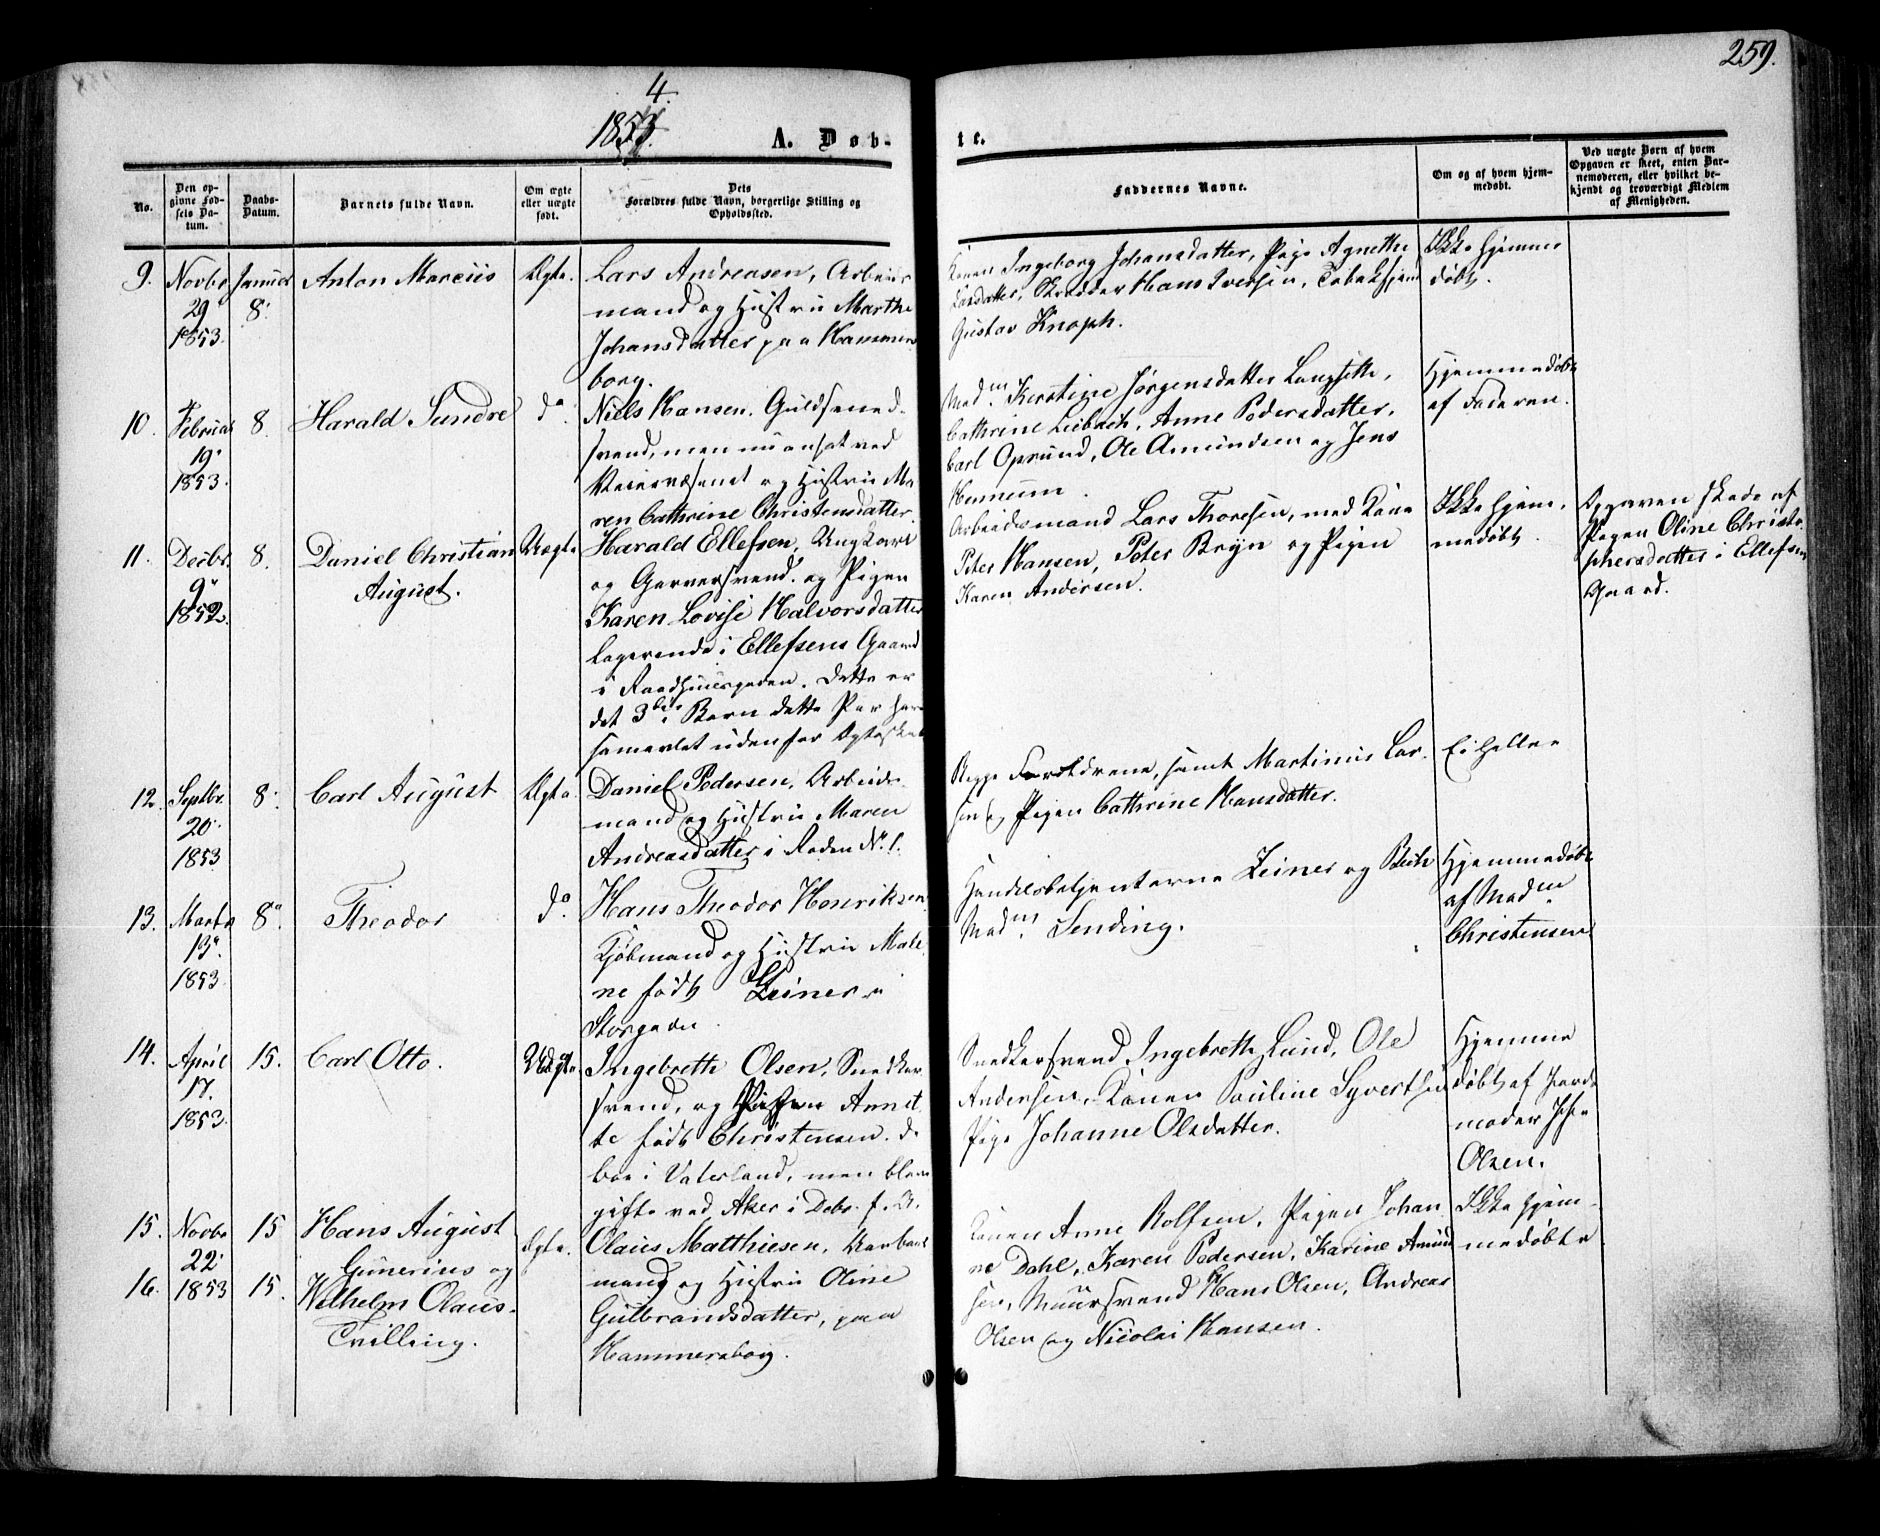 259.
4.
1853.
A. Døb-
te.
No.
Den op-
givne Fød-
sels Da-
tum.
Daabs-
Datum.
Barnets fulde Navn.
Om ægte
eller uægte
født.
Dets
Forældres fulde Navn, borgerlige Stilling og
Opholdssted.
Faddernes Navne.
Om og af hvem hjem-
medøbt.
Ved uægte Børn af hvem
Opgaven er skeet, enten Bar-
nemoderen, eller hvilket be-
kjendt og troværdigt Medlem
af Menigheden.
9.
Novbr
29
1853.
Januar
8.
Anton Marcus
Ægte.
Lars Andreasen, Arbeids
mand og Hustru Marthe
Johansdatter paa Hammers
borg.
Konen Ingeborg Johansdatter, Pige Agnethe
Larsdatter, Skrædder Hans Iversen,
Gustav Knoph.
Ikke hjemme
døbt.
10.
Februar
19.
1853.
8.
Harald Sundre
do
Niels Hansen, Guldsmed-
svend, men nu ansat ved
Veivæsenet og Hustru Ma-
ren Cathrine Christensdatter.
Madm. Kerstine Jørgensdatter Langseth,
Cathrine Leibach, Anne Pedersdatter,
Carl Oprund, Ole Amundsen og Jens
Hennum.
Hjemmedøbt
af Faderen.
11.
Decbr.
9.
1852.
8.
Daniel Christian
August.
Uægte
Harald Ellefsen, Ungkarl
og Garversvend. og Pigen
Karen Lovise Halvorsdatter
logerende i Ellefsens Gaard
i Raadhuusgaden. Dette er
det 3die Barn dette Par har
samavlet udenfor Ægteskab
Arbeidsmand Lars Thoresen, med Kone
Peter Hansen, Peter Bryn og Pigen
Karen Andersen.
Ikke hjem-
medøbt
Opgaven skede af
Pigen Oline Christo
phersdatter i Ellefsens
Gaard.
12.
Septbr.
20.
1853
8.
Carl August
Ægte.
Daniel Pedersen, Arbeids-
mand og Hustru Maren
Andreasdatter i Roden No 1.
Begge Forældrene, samt Martinus Lar-
sen og Pigen Cathrine Hansdatter.
Ei heller
13.
Marts
13.
1853.
8.
Theodor
do.
Hans Theodor Henriksen
Kjøbmand og Hustru Male
ne født Zeiner i
Storgaden.
Handelsbetjenterne Zeiner og
Madm. Sending.
Hjemmedøbt
af Madm.
Christensen
14.
April
17.
1853.
15.
Carl Otto.
Uægte.
Ingebreth Olsen, Snedker
svend, og Pigen Annet
te født Christensen. de
boe i Vaterland, men bleve
gifte ved Aker i Debr. f. A.
Snedkersvend Ingebreth Lund, Ole
Andersen, Konen Pauline Syvertsen
Pige Johanne Olsdatter.
Hjemme
døbt af Jorde
moder
Olsen.
15.
16.
Novbr
22.
1853
15
15.
Hans August
Gunerius og
Wilhelm Olaus.
Tvilling.
Ægte.
Olaus Matthiesen, Arbeids
mand og Hustru Oline
Gulbrandsdatter, paa
Hammersborg.
Konen Anne Rolfsen, Pigen Johan
ne Dahl, Karen Pedersen, Karine Amund
sen, Muursvend Hans Olsen, Andreas
Olsen og Nicolai Hansen.
Ikke hjem-
medøbte